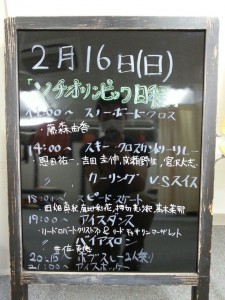 2月16日(日)
「ソチオリンピック日程」
:00〜 スノーボードクロス
・藤森由香
14:00〜 スキー・クロスカントリーリレー
恩田祐一, 吉田圭伸, 成瀬野生, 宮沢大志
〃 カーリング VSスイス
18:00〜 スピードスケート
田畑真紀
19:00〜 アイスダンス
・リードクリス & リード
〃 バイアスロン
20:15〜 ボブスレー2人乗り
21:00〜 アイスホッケー